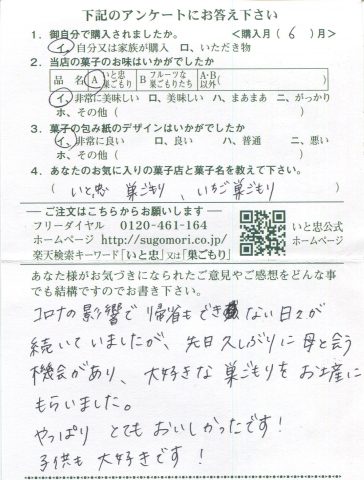 下記のアンケートにお答え下さい
1. 御自分で購入されましたか。 <購入月( 6 )月>
イ、自分又は家族が購入 ロ、いただき物
2. 当店の菓子のお味はいかがでしたか
品 名 A いと忠巣ごもり B フルーツな巣ごもりたち A・B以外( )
イ、非常に美味しい ロ、美味しい ハ、まあまあ ニ、がっかり
ホ、その他( )
3. 菓子の包み紙のデザインはいかがでしたか
イ、非常に良い ロ、良い ハ、普通 ニ、悪い
ホ、その他( )
4. あなたのお気に入りの菓子店と菓子名を教えて下さい。
( いと忠 巣ごもり 、いちご巣ごもり )
― ご注文はこちらからお願いします ―
フリーダイヤル 0120-461-164
ホームページ http://sugomori.co.jp/
楽天検索キーワード「いと忠」又は「巣ごもり」
いと忠公式
ホームページ
あなた様がお気づきになられたご意見やご感想をどんな事
でも結構ですのでお書き下さい。
コロナの影響で帰省もできない日々が
続いていましたが、先日久しぶりに母と会う
機会があり、大好きな巣ごもりをお土産に
もらいました。
やっぱり とてもおいしかったです!
子供も大好きです!